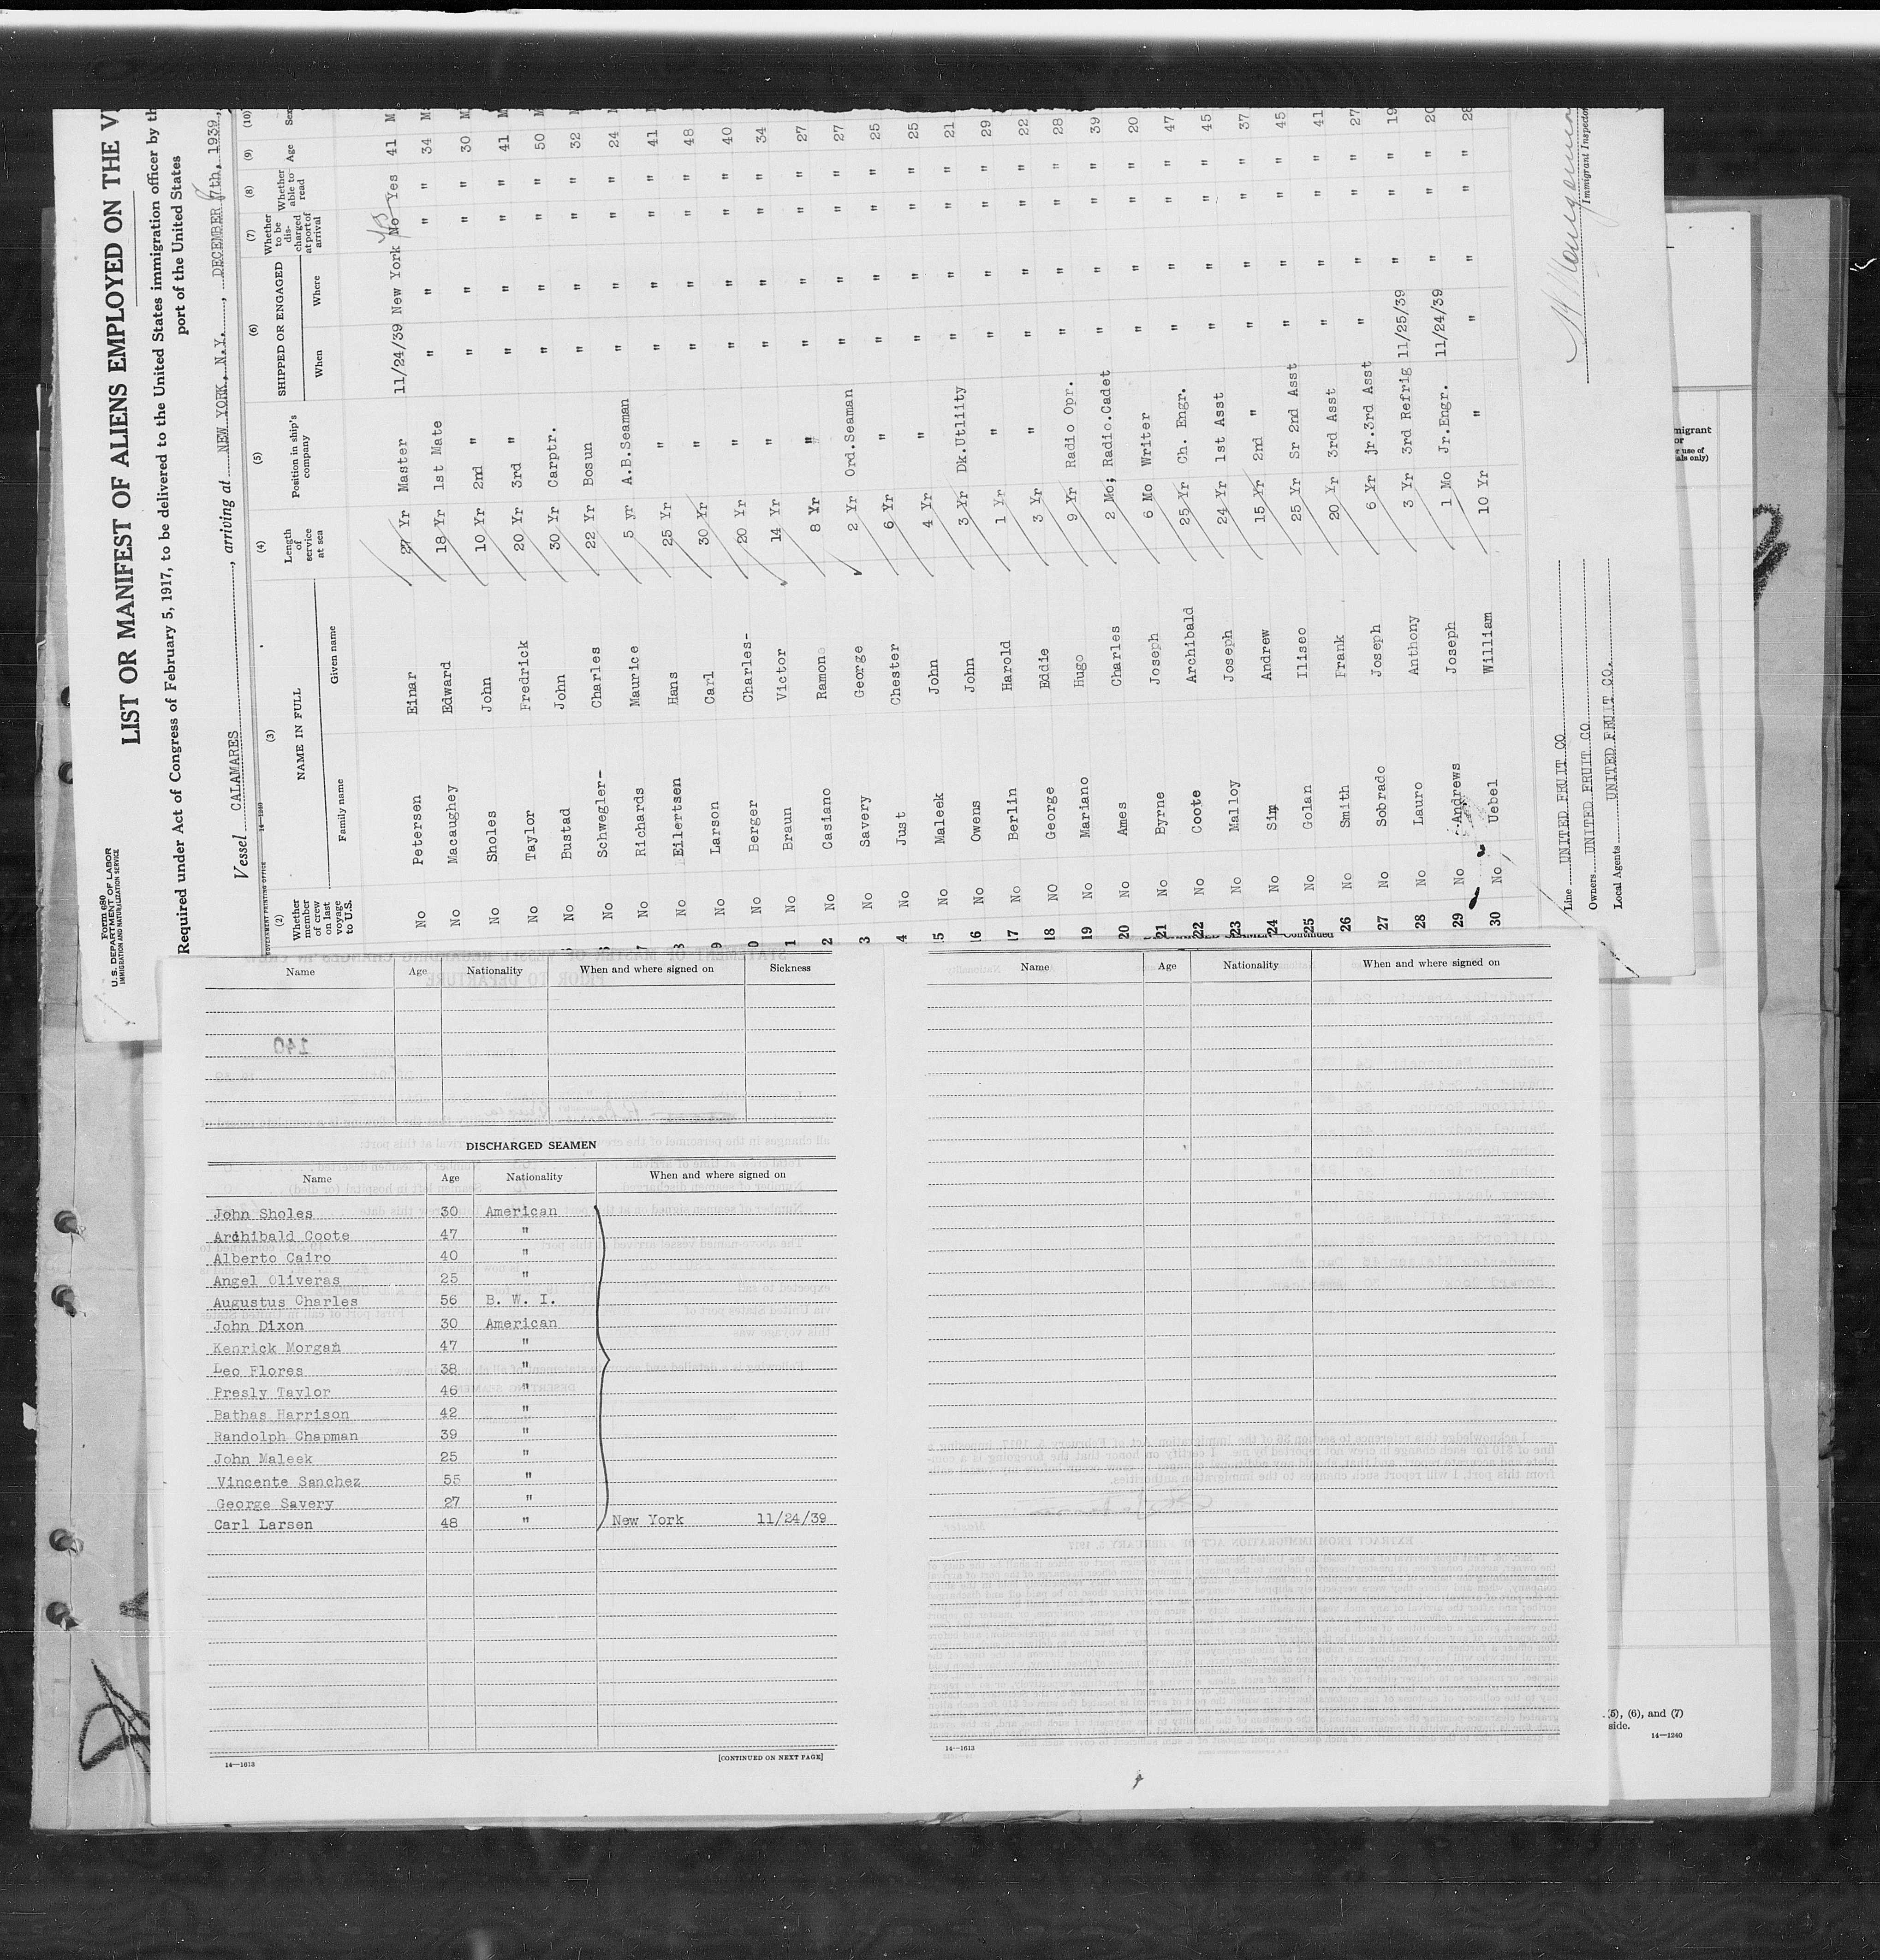 Form 680
U. S. DEPARTMENT OF LABOR
IMMIGRATION AND NATURALIZATION SERVICE
LIST OR MANIFEST OF ALIENS EMPLOYED ON THE
Required under Act of Congress of February 5, 1917, to be delivered to the United States immigration officer by th
port of the United States
Vessel CALAMARES, arriving at NEW YORK, N.Y., DECEMBER 7th, 1939,
GOVERNMENT PRINTING OFFICE 14—1240
(2) (3) (4) (5) (6) (7) (8) (9) (10)
Whether member of crew on last voyage to U.S. NAME IN FULL Length of service at sea Position in ship's company SHIPPED OR ENGAGED Whether to be discharged at port of arrival Whether able to read Age Sex
Family name Given name When Where
No Petersen Einar 27 Yr Master 11/24/39 New York No Yes Yes 41 M
No Macaughey Edward 18 Yr 1st Mate " " " " 34 M
No Sholes John 10 Yr 2nd " " " " " 30 M
No Taylor Fredrick 20 Yr 3rd " " " " " 41 M
No Bustad John 30 Yr Carptr. " " " " 50 M
No Schwegler- Charles 22 Yr Bosun " " " " 32 M
No Richards Maurice 5 yr A.B.Seaman " " " " 24
No Eilertsen Hans 25 Yr " " " " " 41
9 No Larson Carl 30 Yr " " " " " 48
0 No Berger Charles- 20 Yr " " " " " 40
1 No Braun Victor 14 Yr " " " " " 34
2 No Casiano Ramone 8 Yr " " " " " 27
3 No Savery George 2 Yr Ord.Seaman " " " " 27
4 No Just Chester 6 Yr " " " " " 25
15 No Maleek John 4 Yr " " " " " 25
16 No Owens John 3 Yr Dk.Utility " " " " 21
17 No Berlin Harold 1 Yr " " " " " 29
18 NO George Eddie 3 Yr " " " " " 22
19 No Mariano Hugo 9 Yr Radio Opr. " " " " 28
20 No Ames Charles 2 Mo; Radio.Cadet " " " " 39
21 No Byrne Joseph 6 Mo Writer " " " " 20
22 No Coote Archibald 25 Yr Ch. Engr. " " " " 47
23 No Malloy Joseph 24 Yr 1st Asst " " " " 45
24 No Sim Andrew 15 Yr 2nd " " " " " 37
25 No Golan Iliseo 25 Yr Sr 2nd Asst " " " " 45
26 No Smith Frank 20 Yr 3rd Asst " " " " 41
27 No Sobrado Joseph 6 Yr jr.3rd Asst " " " " 27
28 No Lauro Anthony 3 Yr 3rd Refrig 11/25/39 " " " 19
29 No Andrews Joseph 1 Mo Jr.Engr. 11/24/39 " " " 20
30 No Uebel William 10 Yr " " " " " 28
Line UNITED FRUIT CO
Owners UNITED FRUIT CO
Local Agents UNITED FRUIT CO.
Immigrant Inspector
Name Age Nationality When and where signed on Sickness
DISCHARGED SEAMEN
Name Age Nationality When and where signed on
John Sholes 30 American
Archibald Coote 47 "
Alberto Cairo 40 "
Angel Oliveras 25 "
Augustus Charles 56 B. W. I.
John Dixon 30 American
Kenrick Morgan 47 "
Leo Flores 38 "
Presly Taylor 46 "
Bathas Harrison 42 "
Randolph Chapman 39 "
John Maleek 25 "
Vincente Sanchez 55 "
George Savery 27 "
Carl Larsen 48 " New York 11/24/39
14—1613 [CONTINUED ON NEXT PAGE]
Continued
Name Age Nationality When and where signed on
14—1613
migrant
or
r use of
ials only)
(5), (6), and (7)
side.
14—1240